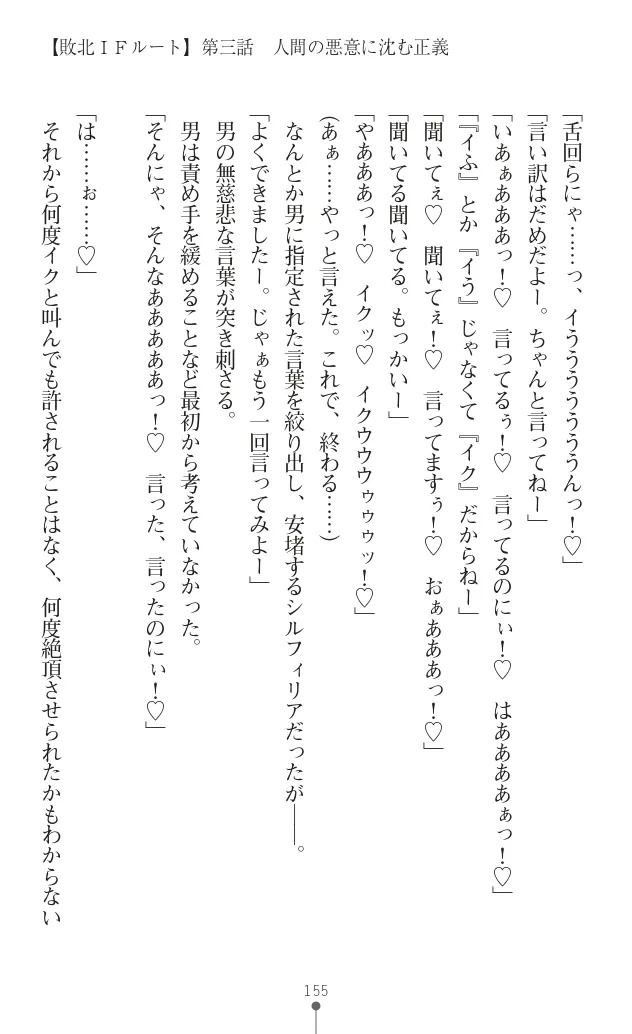 【敗北ＩＦルート】第三話　人間の悪意に沈む正義
「舌回らにゃ……っ、イううううううんっ！♡」
「言い訳はだめだよー。ちゃんと言ってねー」
「いあぁあああっ！♡　言ってるぅ！♡　言ってるのにぃ！♡　はああああぁっ！♡」
「『イふ』とか『イう』じゃなくて『イク』だからねー」
「聞いてぇ♡　聞いてぇ！♡　言ってますぅ！♡　おぁあああっ！♡」
「聞いてる聞いてる。もっかいー」
「やあああっ！♡　イクッ♡　イクウウウゥゥゥッ！♡」
（あぁ……やっと言えた。これで、終わる……）
なんとか男に指定された言葉を絞り出し、安堵するシルフィリアだったが――。
「よくできましたー。じゃぁもう一回言ってみよー」
男の無慈悲な言葉が突き刺さる。
男は責め手を緩めることなど最初から考えていなかった。
「そんにゃ、そんなあああああっ！♡　言った、言ったのにぃ！♡」
「は……ぉ……♡」
それから何度イクと叫んでも許されることはなく、何度絶頂させられたかもわからない
155